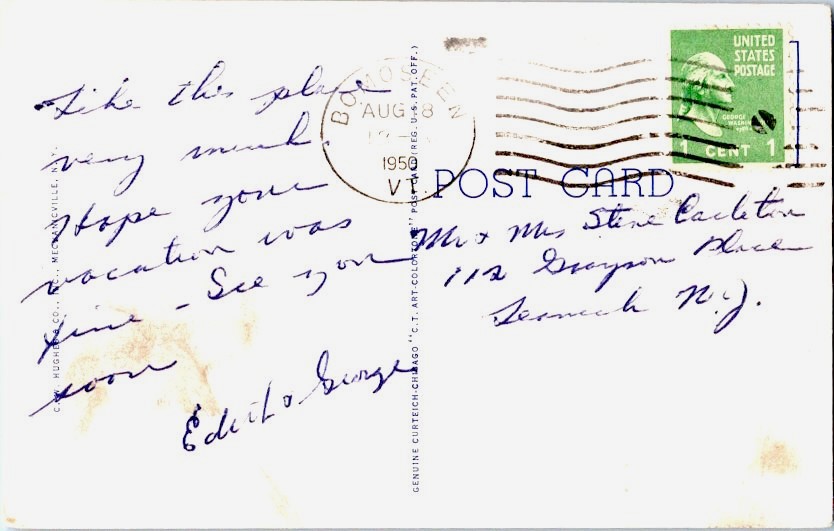 Like this place
very much.
Hope your
vacation was
fine - See you
soon
Edith & George
C.W. HUGHES & CO., INC., MECHANICVILLE, N.Y.
GENUINE CURTEICH-CHICAGO "C.T. ART-COLORTONE" POST CARD (REG. U.S. PAT. OFF.)
BOMOSEEN
AUG 8
1950
VT.
UNITED
STATES
POSTAGE
GEORGE
1 CENT 1
POST CARD
Mr & Mrs Steve Carleton
112 Grayson Place
Teaneck N.J.